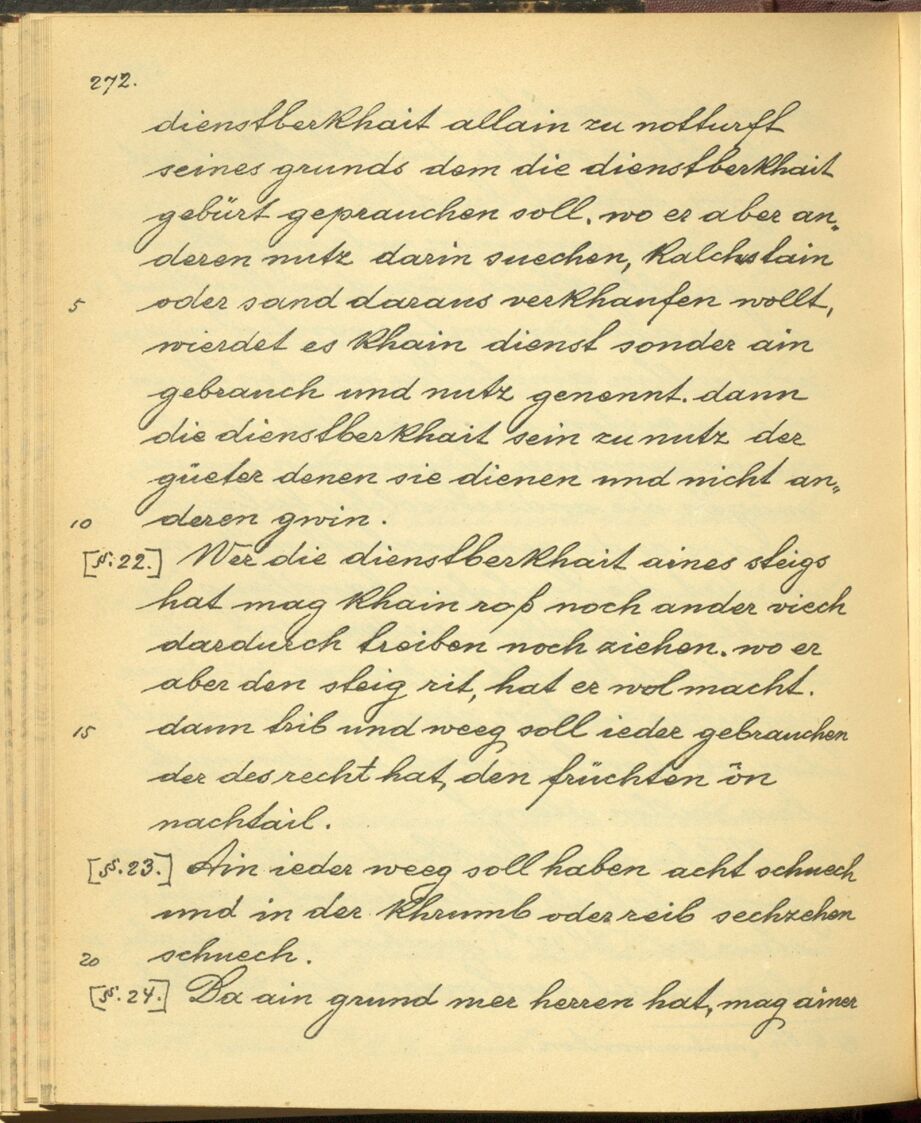 272.
dienstberkhait allain zu notturft
seines grunds dem die dienstberkhait
gebürt geprauchen soll. wo er aber an„
deren nutz darin suechen, kalchstain
5 oder sand daraus verkhaufen wollt,
wierdet es khain dienst sonder ain
gebrauch und nutz genennt. dann
die dienstberkhait sein zu nutz der
güeter denen sie dienen und nicht an„
10 deren gwin.
[§.22.] Wer die dienstberkhait aines steigs
hat mag khain roß noch ander viech
dardurch treiben noch ziehen. wo er
aber den steig rit, hat er wol macht.
15 dann trib und weeg soll ieder gebrauchen
der des recht hat, den früchten ön
nachtail.
[§.23.] Ain ieder weeg soll haben acht schuech
und in der khrumb oder reib sechzehen
20 schuech.
[§.24.] Da ain grund mer herren hat, mag ainer